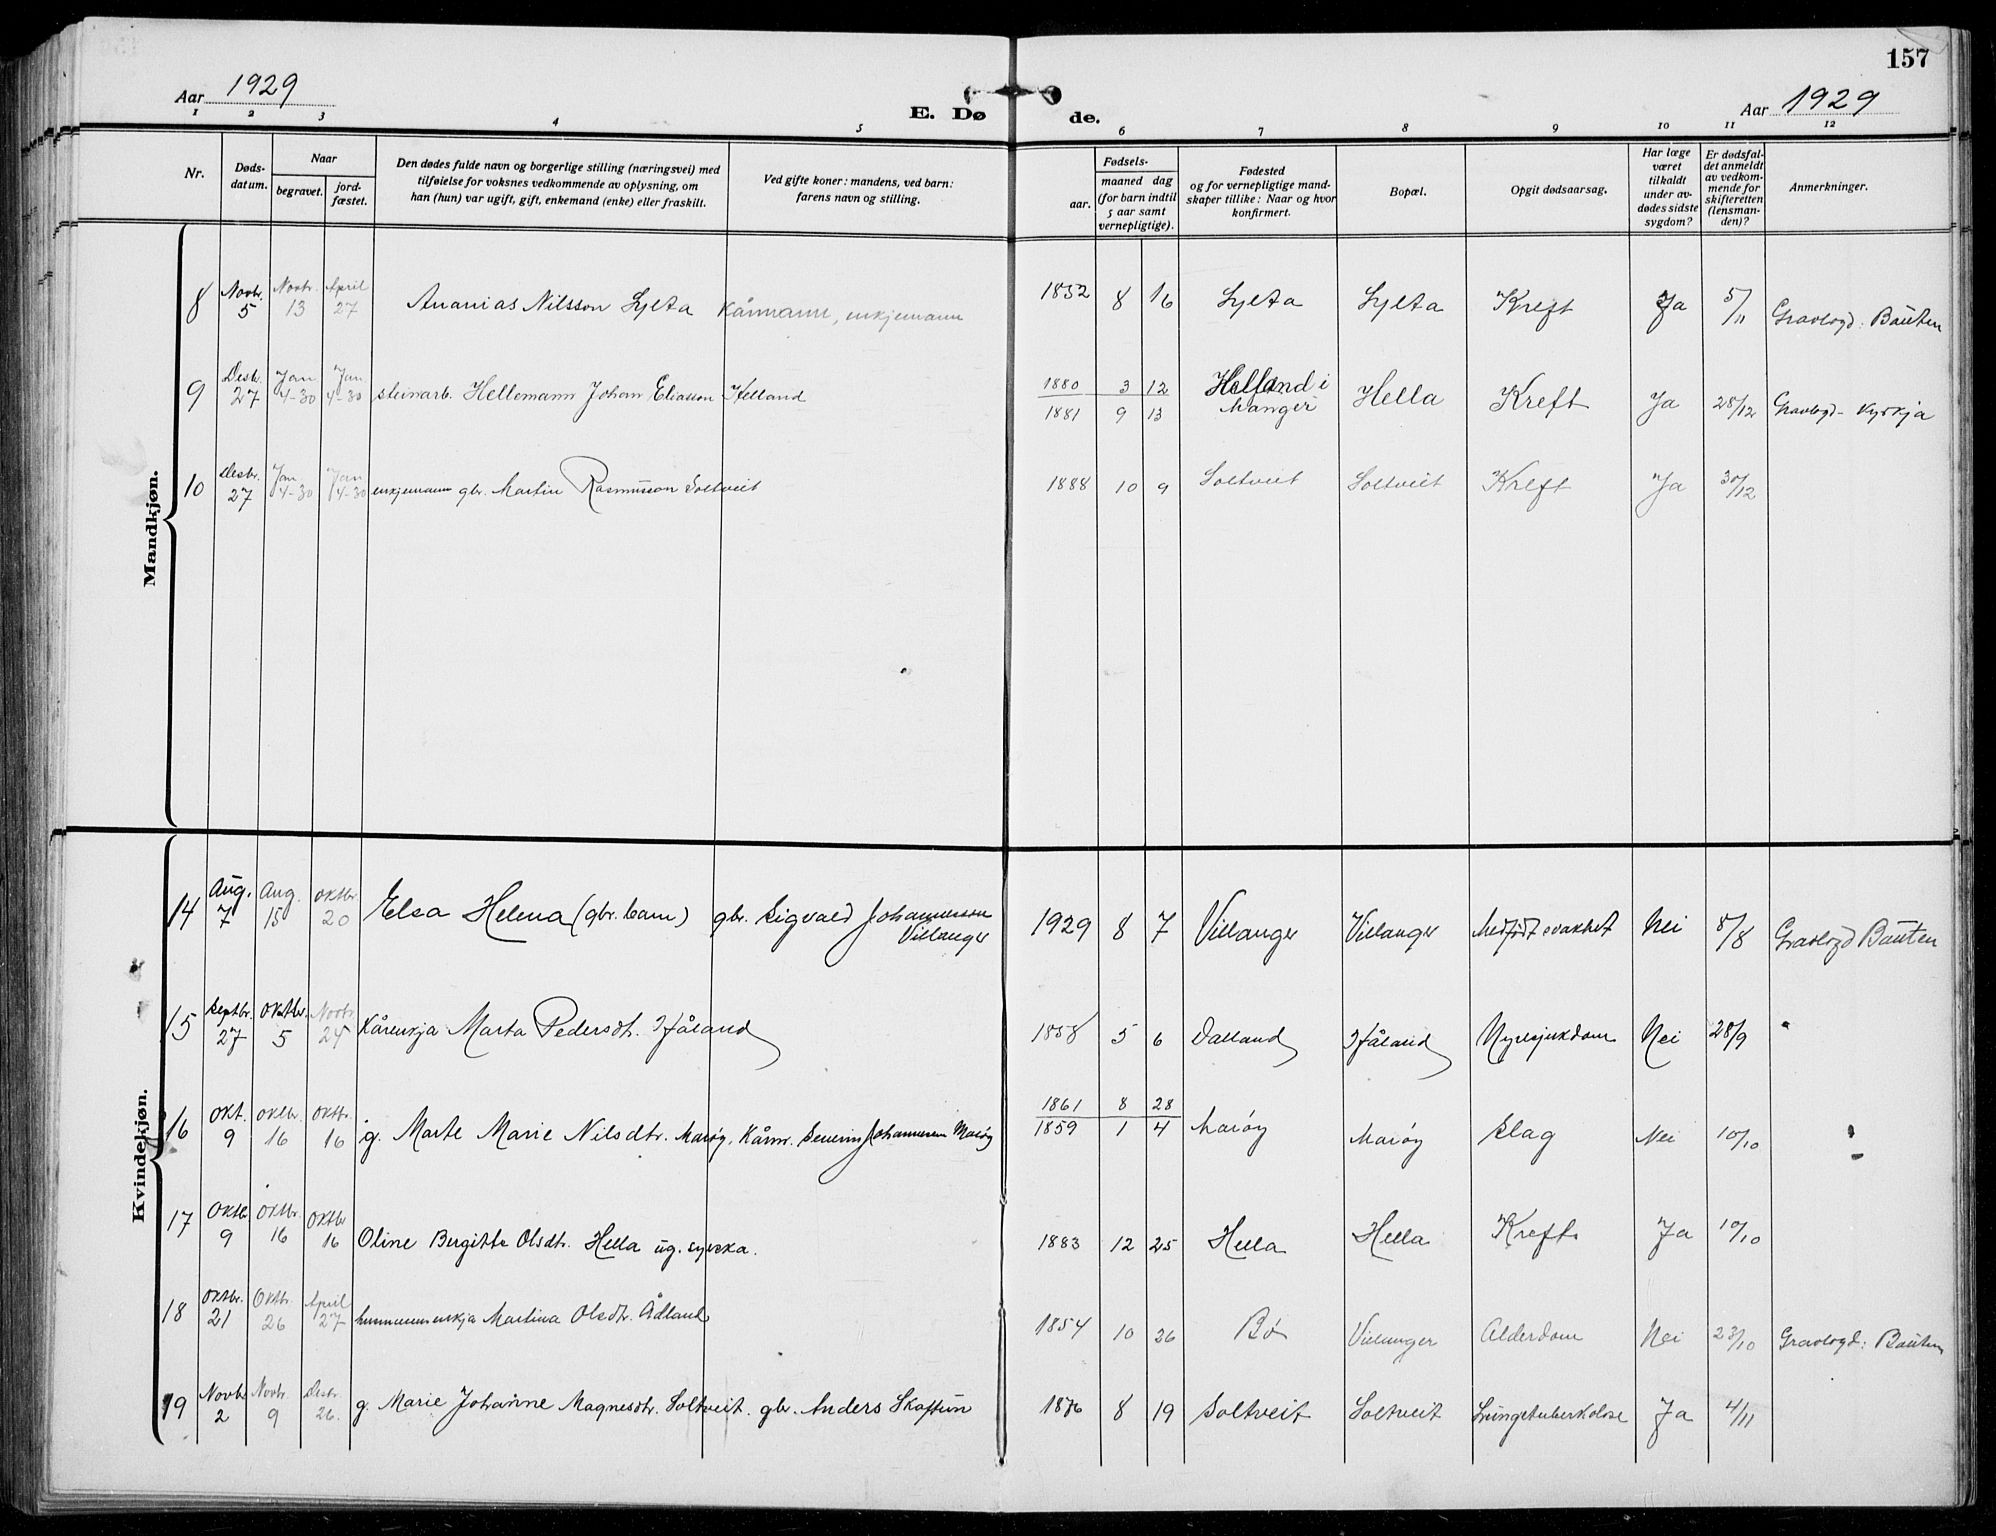 157
Aar 1929
E. Døde.
Aar 1929
1 2 3 4 5 6 7 8 9 10 11 12
Nr.
Døds-datum.
Naar
begravet.
jord-fæstet.
Den dødes fulde navn og borgerlige stilling (næringsvei) med
tilføielse for voksnes vedkommende av oplysning, om
han (hun) var ugift, gift, enkemand (enke) eller fraskilt.
Ved gifte koner: mandens, ved barn:
farens navn og stilling.
Fødsels-
aar.
maaned dag
(for barn indtil
5 aar samt
vernepligtige).
Fødested
og for vernepligtige mand-
skaper tillike: Naar og hvor
konfirmert.
Bopæl.
Opgit dødsaarsag.
Har læge
været
tilkaldt
under av-
dødes sidste
sygdom?
Er dødsfal-
det anmeldt
av vedkom-
mende for
skifteretten
(lensman-
den)?
Anmerkninger.
Mandkjøn.
8 Novbr. 5 Novbr. 13 April 27 Ananias Nilsson Sylta kårmann, enkjemann 1852 8 16 Sylta Sylta Kreft Ja 5/11 Gravlogd: Bauten
9 Desbr. 27 Jan 4-30 Jan 4-30 steinarb. Hellemann Johan Eliasson Helland 1880 3 12 Helland i Hella Kreft Ja 28/12 Gravlogd - Kyrkja
1881 9 13 Manger
10 Desbr. 27 Jan 4-30 Jan 4-30 enkjemann gbr. Martin Rasmusson Soltveit 1888 10 9 Soltveit Soltveit Kreft Ja 30/12
Kvindekjøn.
14 Aug. 7 Aug. 15 Oktbr 20 Elsa Helena (gbr. barn) gbr. Sigvald Johannesson 1929 8 7 Villanger Villanger Medfødt svakhet Nei 8/8 Gravlogd Bauten
Villanger
15 Septbr. 27 Oktbr. 5 Novbr. 24 Kårenkja Marta Pedersdtr. 1858 5 6 Dalland Nyresjukdom Nei 28/9
16 Okt. 9 Oktbr 16 Oktbr. 16 g. Marte Marie Nilsdtr. Marøy. Kårm. Severin Johannesen Marøy 1861 8 28 Marøy Marøy Slag Nei 10/10
1859 1 4
17 Oktbr 9 Oktbr. 16 Oktbr 16 Oline Bergitte Olsdtr. Hella ug. syerska. 1883 12 25 Hella Hella Kreft Ja 10/10
18 Oktbr. 21 Oktbr. 26 April 27 husmannsenkja Martina Olsdtr. Ådland 1854 10 26 Bø Villanger Alderdom Nei 23/10 Gravlogd: Bauten
19 Novbr 2 Novbr. 9 Desbr. 26. g. Marie Johanne Magnesdtr. Soltveit. gbr. Anders Skaftun 1876 8 19 Soltveit Soltveit Lungetuberkolose Ja 4/11